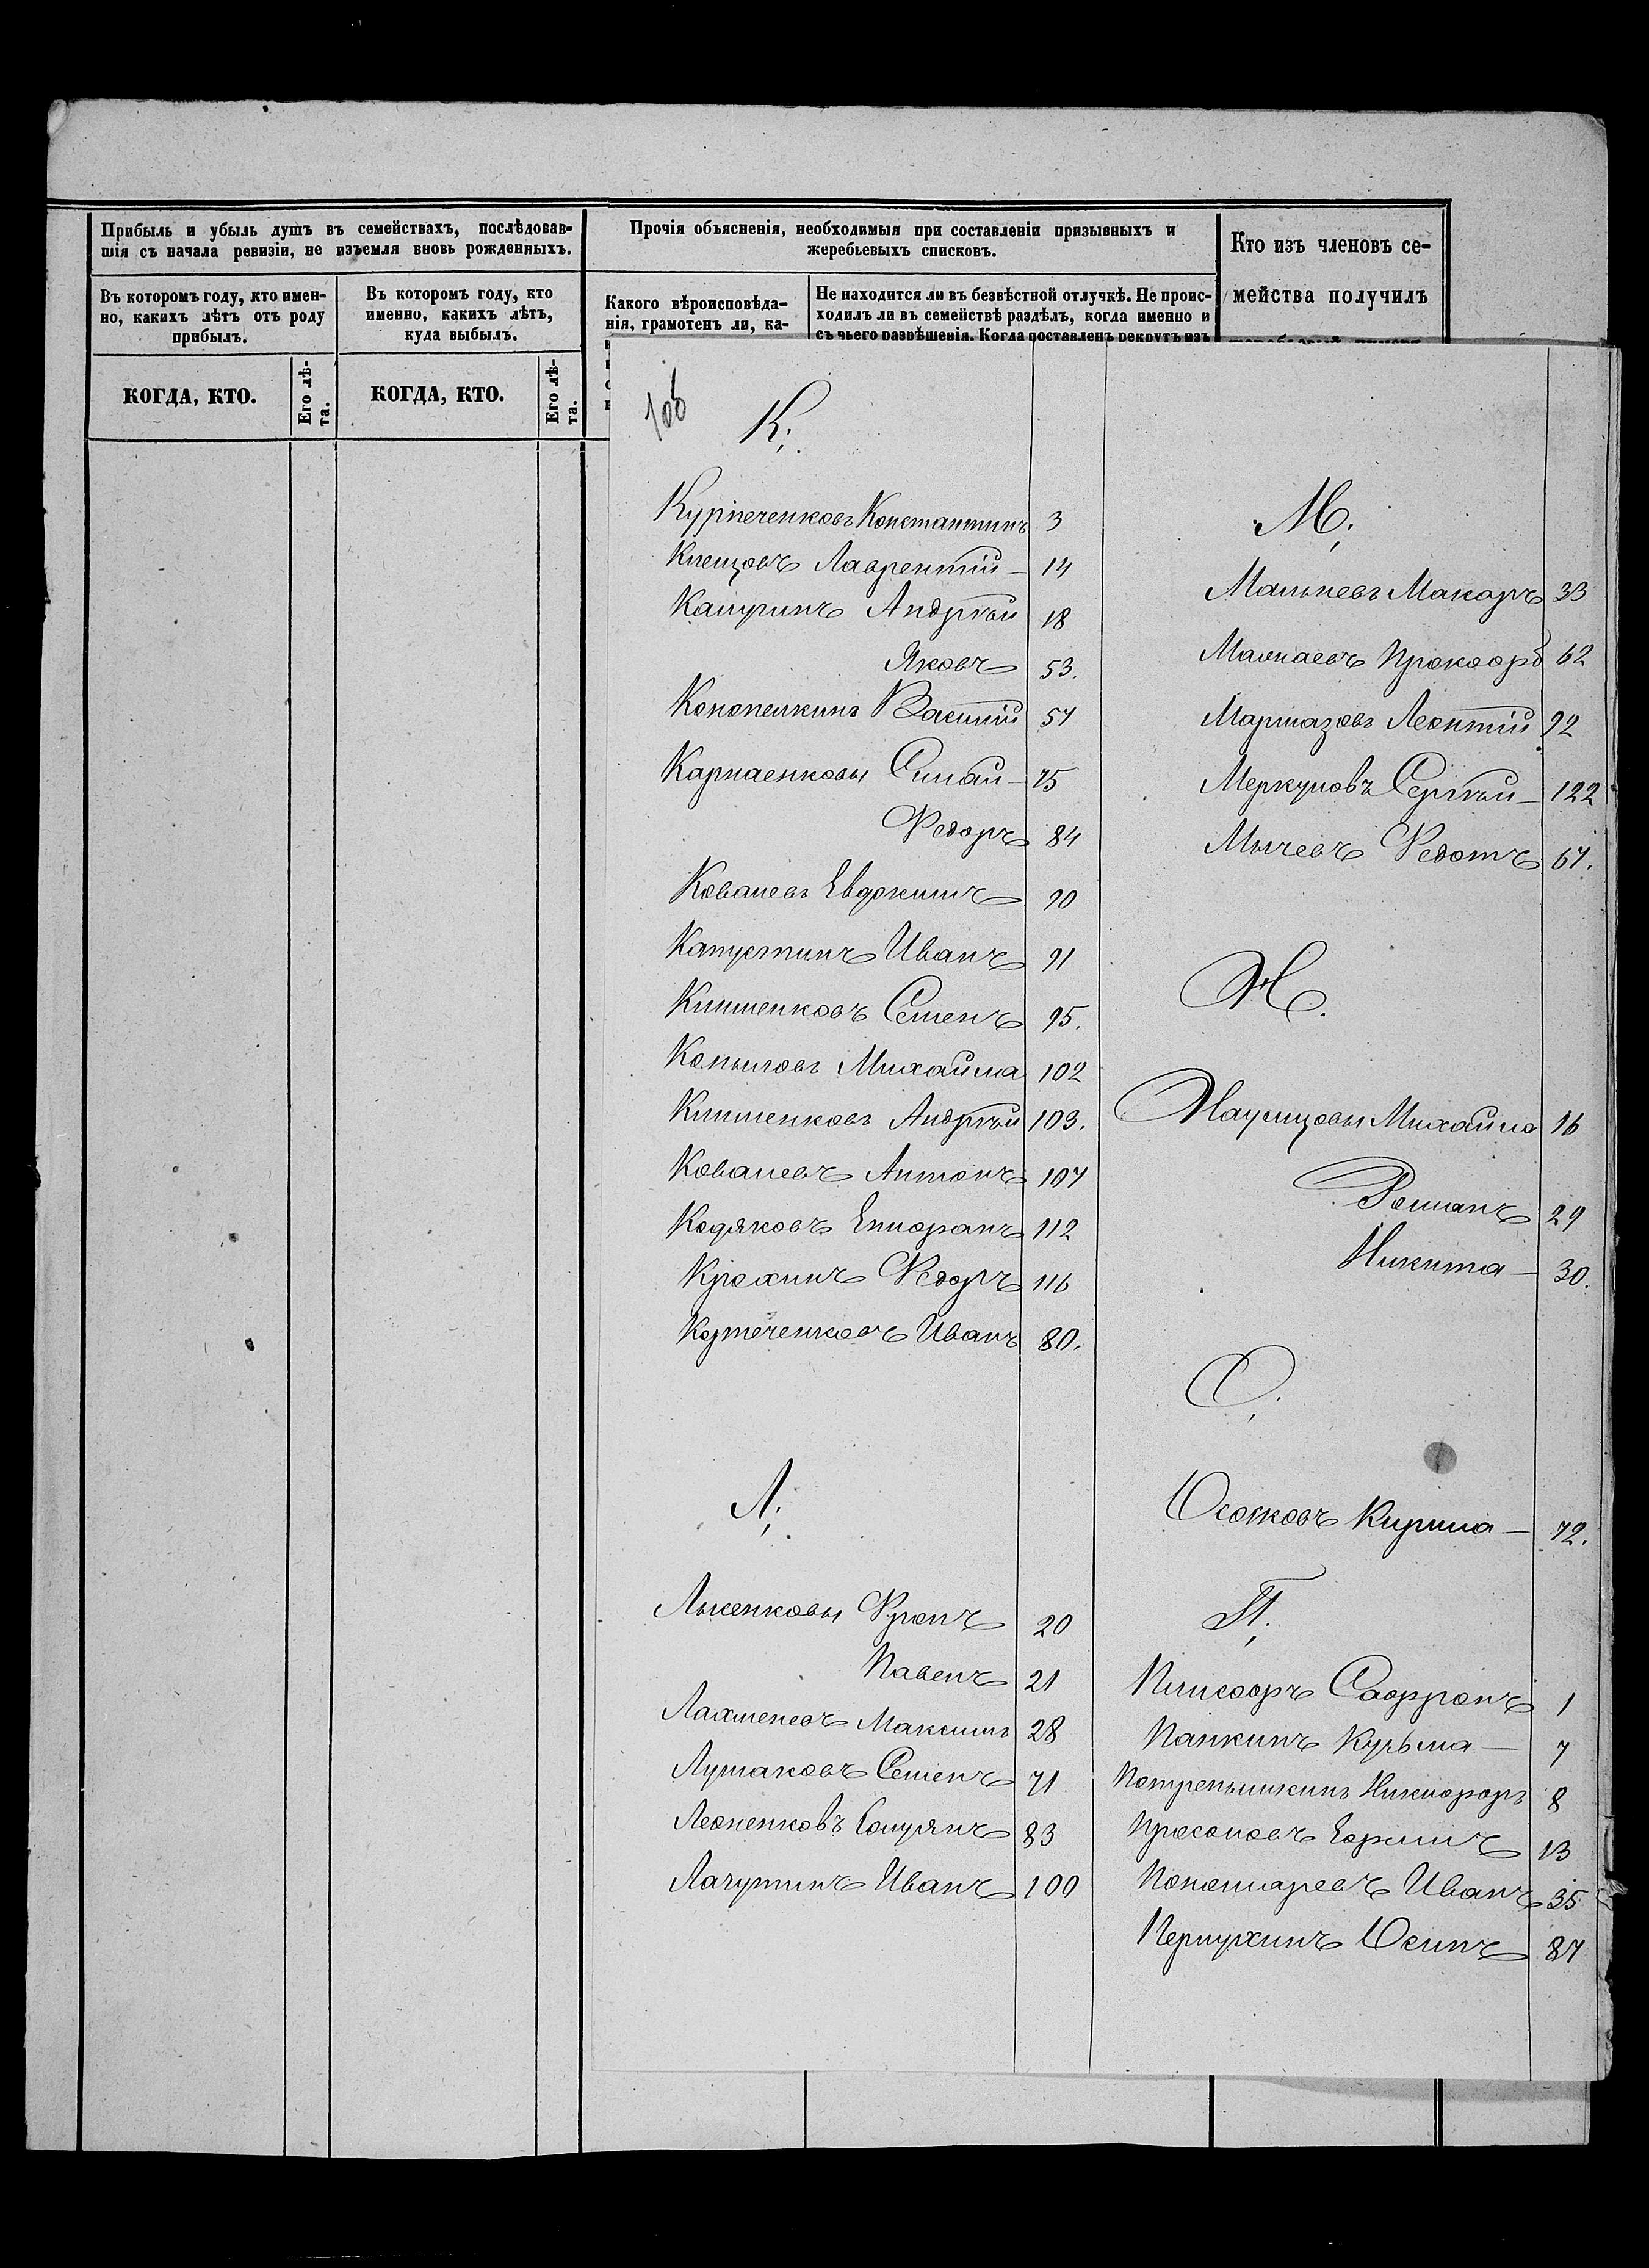 Прибыль и убыль душъ въ семействахъ, послѣдовав-
шія съ начала ревизіи, не изъемля вновь рожденныхъ.
Прочія объясненія, необходимыя при составленіи призывныхъ и
жеребьевыхъ списковъ.
Кто изъ членовъ се-
мейства получилъ
Въ которомъ году, кто имен-
но, какихъ лѣтъ отъ роду
прибылъ.
Въ которомъ году, кто
именно, какихъ лѣтъ,
куда выбылъ.
Какого вѣроисповѣда-
нія, грамотенъ ли, ка-
Не находится ли въ безвѣстной отлучкѣ. Не проис-
ходилъ ли въ семействѣ раздѣлъ, когда именно и
съ чьего разрѣшенія. Когда поставленъ рекрутъ изъ
КОГДА, КТО.
Его лѣ-
та.
КОГДА, КТО.
Его лѣ-
та.
106
К;
Константинъ 3
Клецовъ Лаврентій – 14
Кашуринъ Андрѣй 18
Яковъ 53.
Конопелкинъ Василій 57
Карпаенковы 75
Федоръ 84
Ковалевъ Евдокимъ 90
Капустинъ Иванъ 91
Клименковъ Семенъ 95.
Копыловъ Михайла 102
Климснковъ Андрѣй 103.
Ковалевъ Антонъ 107
Кодяковъ 112
Крохинъ Федоръ 116
Иванъ 80.
Л;
Лысенковы Фролъ 20
Павелъ 21
Лахменевъ Максимъ 28
Лутаковъ Семенъ 71
Леоненковъ 83
Лагутинъ Иванъ 100
М;
Макаръ 33
Прокофъ 62
Мармазовъ Леонтій 92
Меркуловъ Сергѣй – 122
Мычевъ Федотъ 67.
Н.
Наумцовы Михайло 16
Романъ 29
Никита – 30.
О;
Осоковъ Кирила – 72.
П;
Сафронъ 1
Панкинъ Кузьма – 7
Никифоръ 8
Ефимъ 13
Пономаревъ Иванъ 35
Перпухинъ Осипъ 87